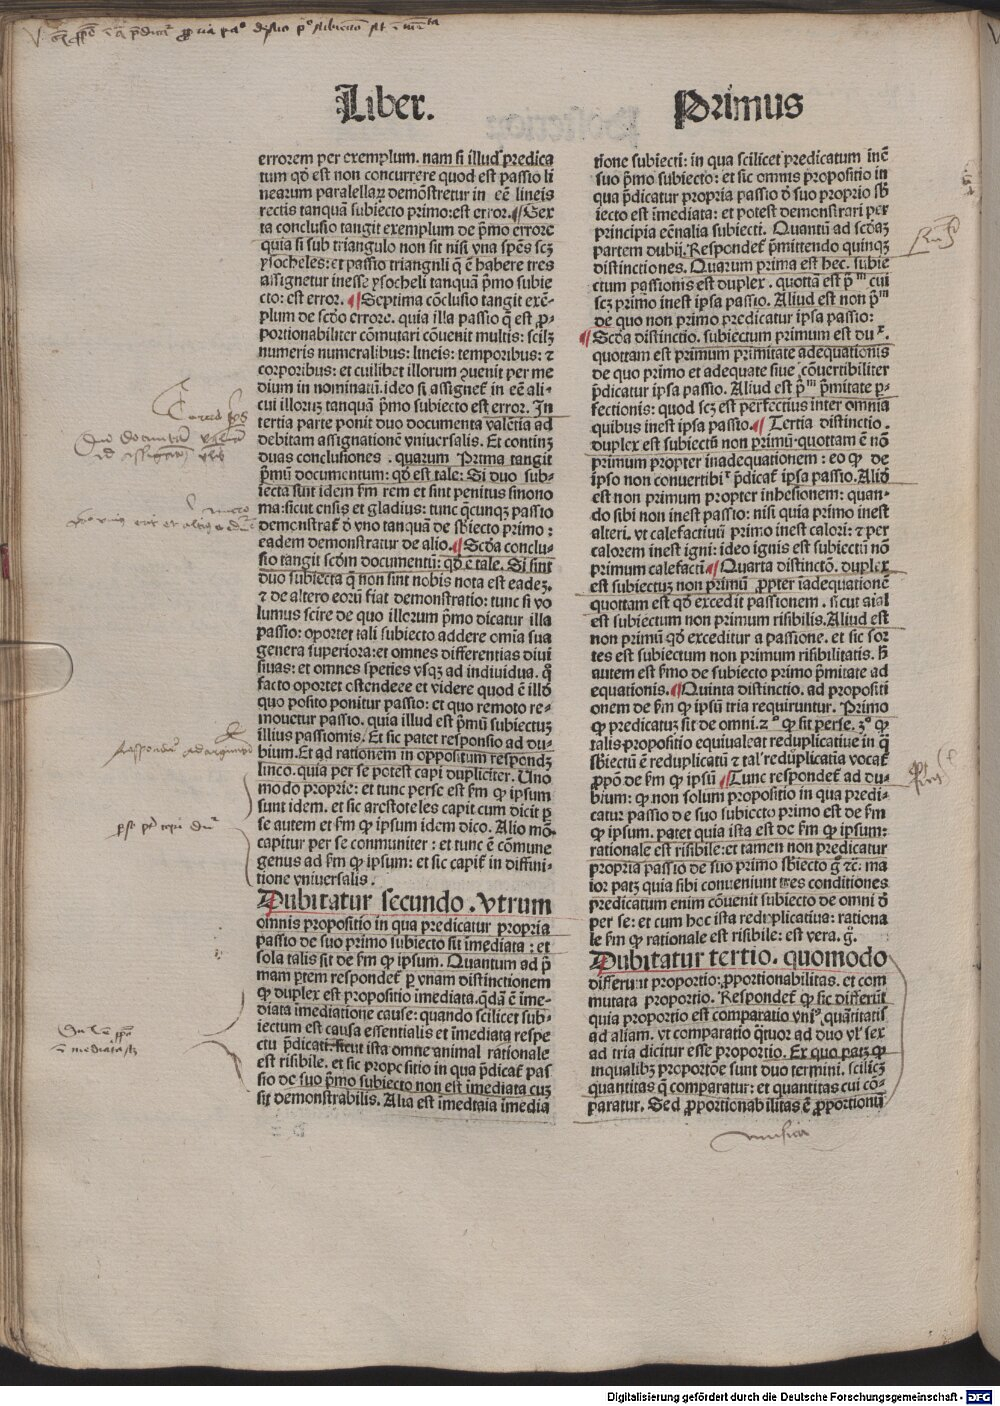 Liber.
Primus
errorem per exemplum. nam si illud predica
tum qđ est non concurrere quod est passio li
nearum parallelaꝝ demōstretur in eē lineis
rectis tanquā subiecto primo: est error. ¶ Sex
ta conclusio tangit exemplum de p̄mo errore
quia si sub triangulo non sit nisi vna spēs scꝫ
ysocheles: et passio trianguli q̄ ē habere tres
assignetur inesse ysocheli tanquā p̄mo subie
cto: est error. ¶ Septima cōclusio tangit exē-
plum de scd̄o errore. quia illa passio q̄ est ꝓ-
portionabiliter cōmutari cōuenit multis: scilꝫ
numeris numeralibus: lineis: temporibus: ⁊
corporibus: et cuilibet illorum ꝯuenit per me
dium in nominatū. ideo si assignet̄ in eē ali-
cui illoruꝫ tanquā p̄mo subiecto est error. In
tertia parte ponit duo documenta valētia ad
debitam assignationē vniuersalis. Et continꝫ
duas conclusiones. quarum Prima tangit
p̄mū documentum: qđ est tale: Si duo sub-
iecta sunt idem fm rem et sint penitus sinono
ma: sicut ensis et gladius: tunc q̄cunqꝫ passio
demonstrat̄ đ vno tanquā de sbiecto primo:
eadem demonstratur de alio. ¶ Scđa conclu-
sio tangit scd̄m documentū: qđ ē tale. Si sint
duo subiecta q̄ non sint nobis nota est eadeꝫ.
⁊ de altero eorū fiat demonstratio: tunc si vo
lumus scire de quo illorum p̄mo dicatur illa
passio: oportet tali subiecto addere omīa sua
genera superiora: et omnes differentias diui
siuas: et omnes species vsqꝫ ad indiuidua. q̊
facto oportet ostendeee et videre quod ē illđ
quo posito ponitur passio: et quo remoto re-
mouetur passio. quia illud est p̄mū subiectuꝫ
illius passionis. Et sic patet responsio ad du-
bium. Et ad rationem in oppositum respondꝫ
linco. quia per se potest capi dupliciter. Uno
modo proprie: et tunc perse est fm ꝙ ipsum
sunt idem. et sic arestoteles capit cum dicit ꝑ
se autem et fm ꝙ ipsum idem dico. Alio mō
capitur per se conmuniter: et tunc ē cōmune
genus ad fm ꝙ ipsum: et sic capit̄ in diffini-
tione vniuersalis.
Dubitatur secundo. Vtrum
omnis propositio in qua predicatur propria
passio de suo primo subiecto sit īmediata: et
sola talis sit de fm ꝙ ipsum. Quantum ad p̄
mam ptem respondet̄ ꝑ vnam distinctionem
ꝙ duplex est propositio īmediata. qđā ē īme-
diata īmediatione cause: quando scilicet sub-
iectum est causa essentialis et īmediata respe
ctu p̄dicati. sicut ista omne animal rationale
est risibile. et sic propositio in qua p̄dicat̄ pas
sio de suo p̄mo subiecto non est īmediata cuꝫ
sit demonstrabilis. Alia est īmedtaia īmedia
tione subiecti: in qua scilicet predicatum inē
suo p̄mo subiecto: et sic omnis propositio in
qua p̄dicatur propria passio đ suo proprio sb̄
iecto est īmediata: et potest demonstrari per
principia eēnalia subiecti. Quantū ad scđaꝫ
partem dubij. Respondet̄ p̄mittendo quinqꝫ
distinctiones. Quarum prima est hec. subie
ctum passionis est duplex. quottā est p̄ᵐ cui
scꝫ primo inest ipsa passio. Aliud est non p̄ᵐ
de quo non primo predicatur ipsa passio:
¶ Scđa distinctio. subiectum primum est duˣ.
quottam est primum primitate adequationis
de quo primo et adequate siue cōuertibiliter
p̄dicatur ipsa passio. Aliud est p̄ᵐ p̄mitate ꝑ-
fectionis: quod scꝫ est perfectius inter omnia
quibus inest ipsa passio. ¶ Tertia distinctio.
duplex est subiectū non primū. quottam ē nō
primum propter inadequationem: eo ꝙ de
ipso non conuertibiʳ p̄dicat̄ ipsa passio. Aliđ
est non primum propter inhesionem: quan-
do sibi non inest passio: nisi quia primo inest
alteri. vt calefactiuū primo inest calori: ⁊ per
calorem inest igni: ideo ignis est subiectū nō
primum calefactiū ¶ Quarta distinctō. duplex
est subiectuꝫ non primū ꝓpter īadequationē
quottam est qđ excedit passionem. sicut aīal
est subiectum non primum risibilis. Aliud est
non primū qđ exceditur a passione. et sic sor
tes est subiectum non primum risibilitatis. h̄
autem est fmo de subiecto primo p̄mitate ad
equationis. ¶ Quinta distinctio. ad propositi
onem de fm ꝙ ipsū tria requiruntur. Primo
ꝙ predicatuꝫ sit de omni. 2° ꝙ sit perse. 3° ꝙ
talis propositio equiualeat reduplicatiue in q̄
sbiectū ē reduplicatū ⁊ talʳ reduplicatia vocat̄
ꝓpō de fm ꝙ ipsū ¶ Tunc respondet̄ ad du-
bium: ꝙ non solum propositio in qua predi-
catur passio de suo subiecto primo est de fm
ꝙ ipsum. patet quia ista est de fm ꝙ ipsum:
rationale est risibile: et tamen non predicatur
propria passio de suo primo sbiecto g̊ ⁊c. ma
ior patꝫ quia sibi conueniunt tres conditiones
predicatum enim cōuenit subiecto de omni đ
per se: et cum hoc ista reduplicatiua: rationa
le fm ꝙ rationale est risibile: est vera. g̊.
Dubitatur tertio. quomodo
differunt proportio: ꝓportionabilitas. et com
mutata proportio. Respondet̄ ꝙ sic differūt
quia proportio est comparatio vniꝰ quātitatis
ad aliam. vt comparatio q̄tuor ad duo vl' sex
ad tria dicitur esse proportio. Ex quo patꝫ ꝙ
inqualibꝫ proportōe sunt duo termini. scilicꝫ
quantitas q̄ comparatur: et quantitas cui cō-
paratur. Sed ꝓportionabilitas ē ꝓportionū
musica
Digitalisierung gefördert durch die Deutsche Forschungsgemeinschaft - DFG